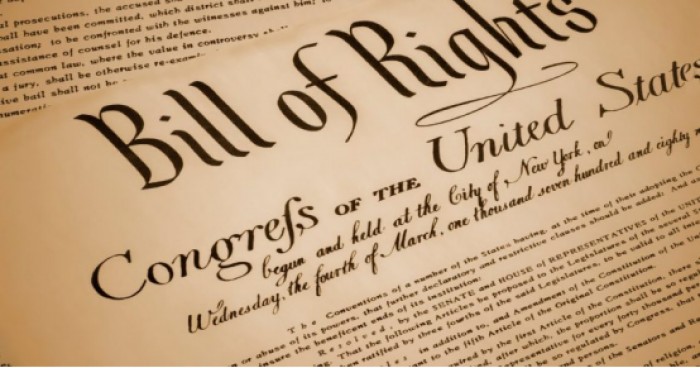 al prosecutions, the accused sha
all have been committed, which district shall
sation; to be confronted with the witnesses against him; to
assistance of counsel for his defence.
at common law, where the value in controversy shall
a jury, shall be otherwise re-exami
ive bail shall not be
numerati
Bill of Rights
Congreſs OF THE United States
begun and held at the City of New York, on
Wednesday, the fourth of March, one thousand seven hundred and eighty
The Conventions of a number of the States having, at the time of their adopting the C
or abuse of its powers, that further declaratory and restrictive clauses should be added: And as
insure the beneficent ends of its institution.
Resolved, by the SENATE and HOUSE of REPRESENTATIVES of the UNITE
ring. That the following Articles be proposed to the Legislatures of the several
hen ratified by three fourths of the said Legislatures, to be valid to all inte
les in addition to, and Amendment of the Constitution of the
nt to the fifth Article of the Original Constitution.
quired by the first Article of the Constitution, there
after which, the proportion shall be so reg
epresentative for every forty thousand
l be so regulated by Congress, that
persons.
of the Senators and